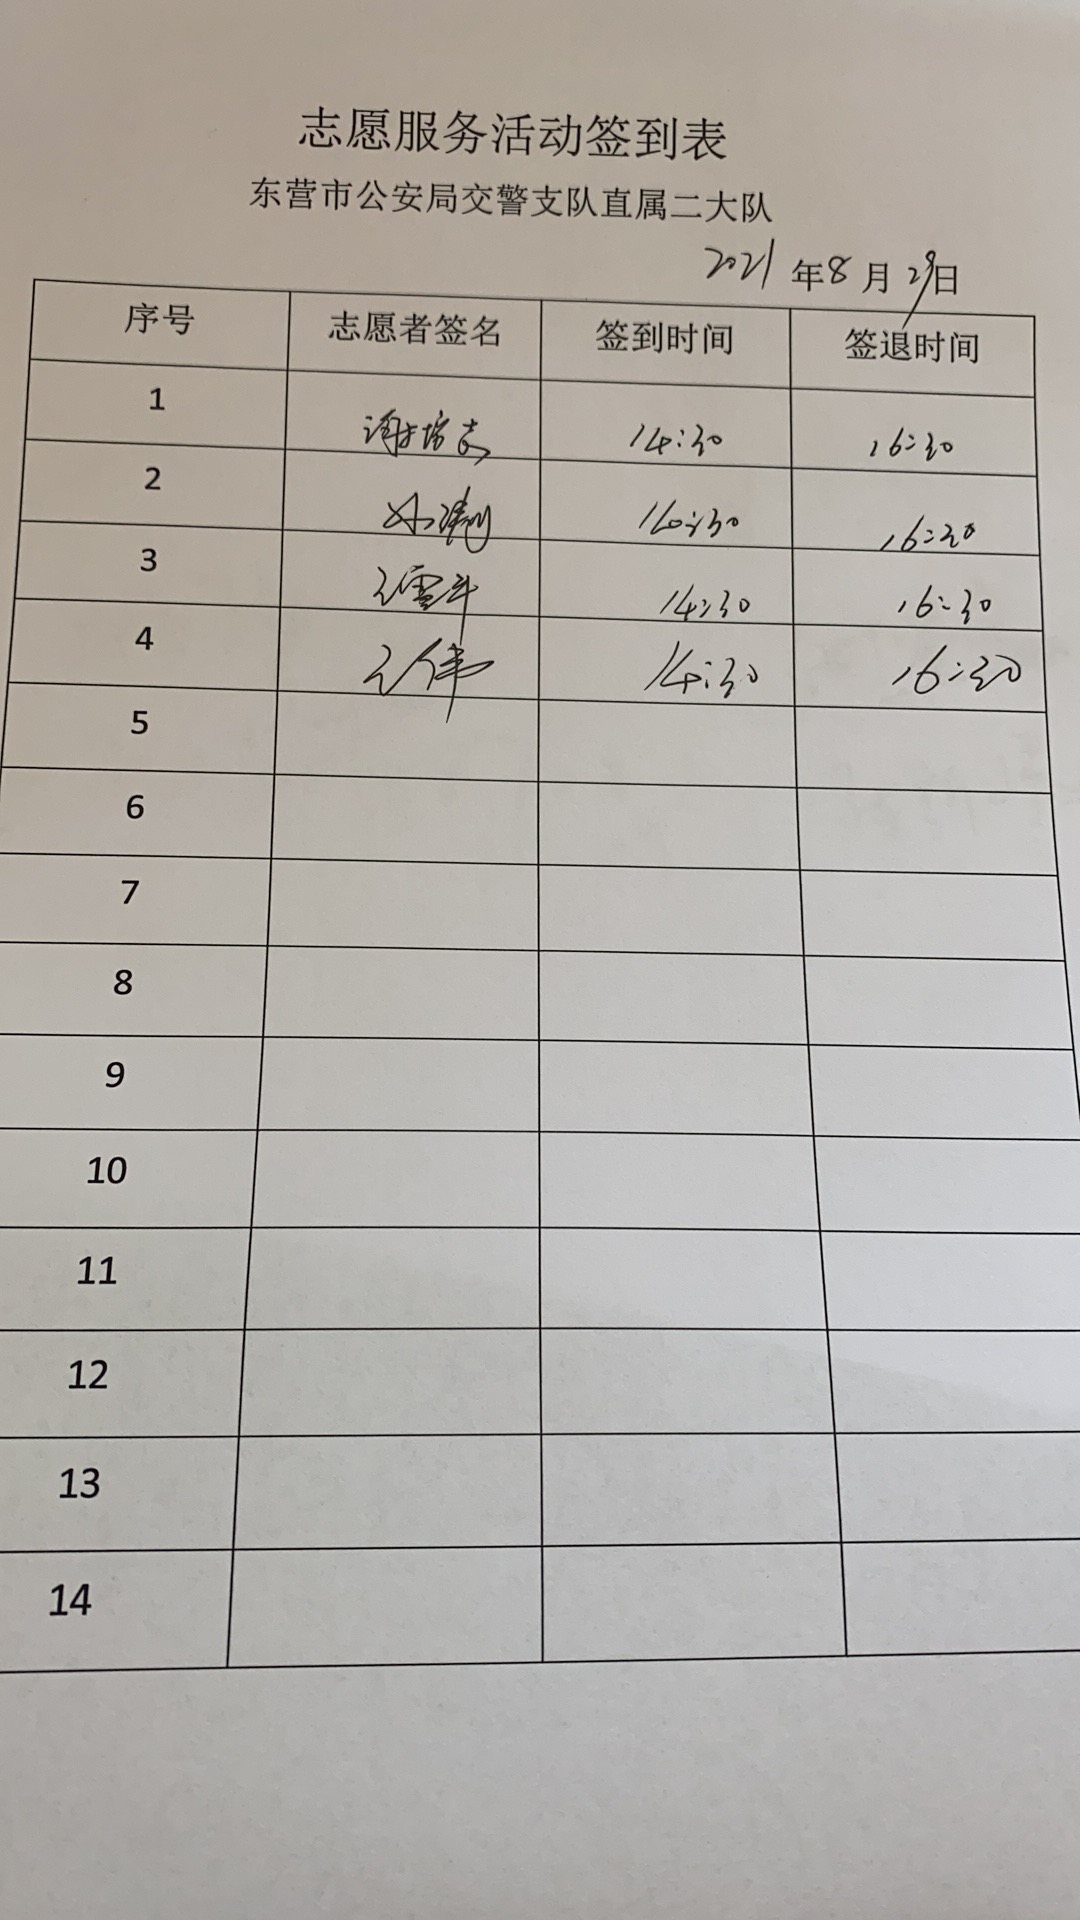 志愿服务活动签到表
东营市公安局交警支队直属二大队
2021 年 8 月 29 日
序号 志愿者签名 签到时间 签退时间
1 谢培志 14:30 16:30
2 16:30
3 王雪斗 14:30 16:30
4 王伟 14:30 16:30
5
6
7
8
9
10
11
12
13
14